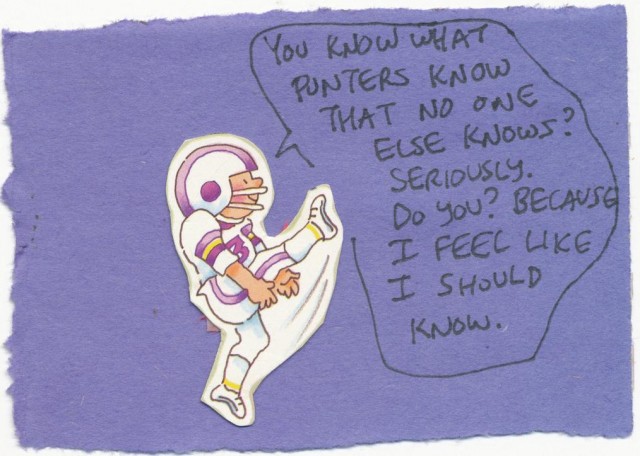 YOU KNOW WHAT
PUNTERS KNOW
THAT NO ONE
ELSE KNOWS?
SERIOUSLY.
DO YOU? BECAUSE
I FEEL LIKE
I SHOULD
KNOW.
3